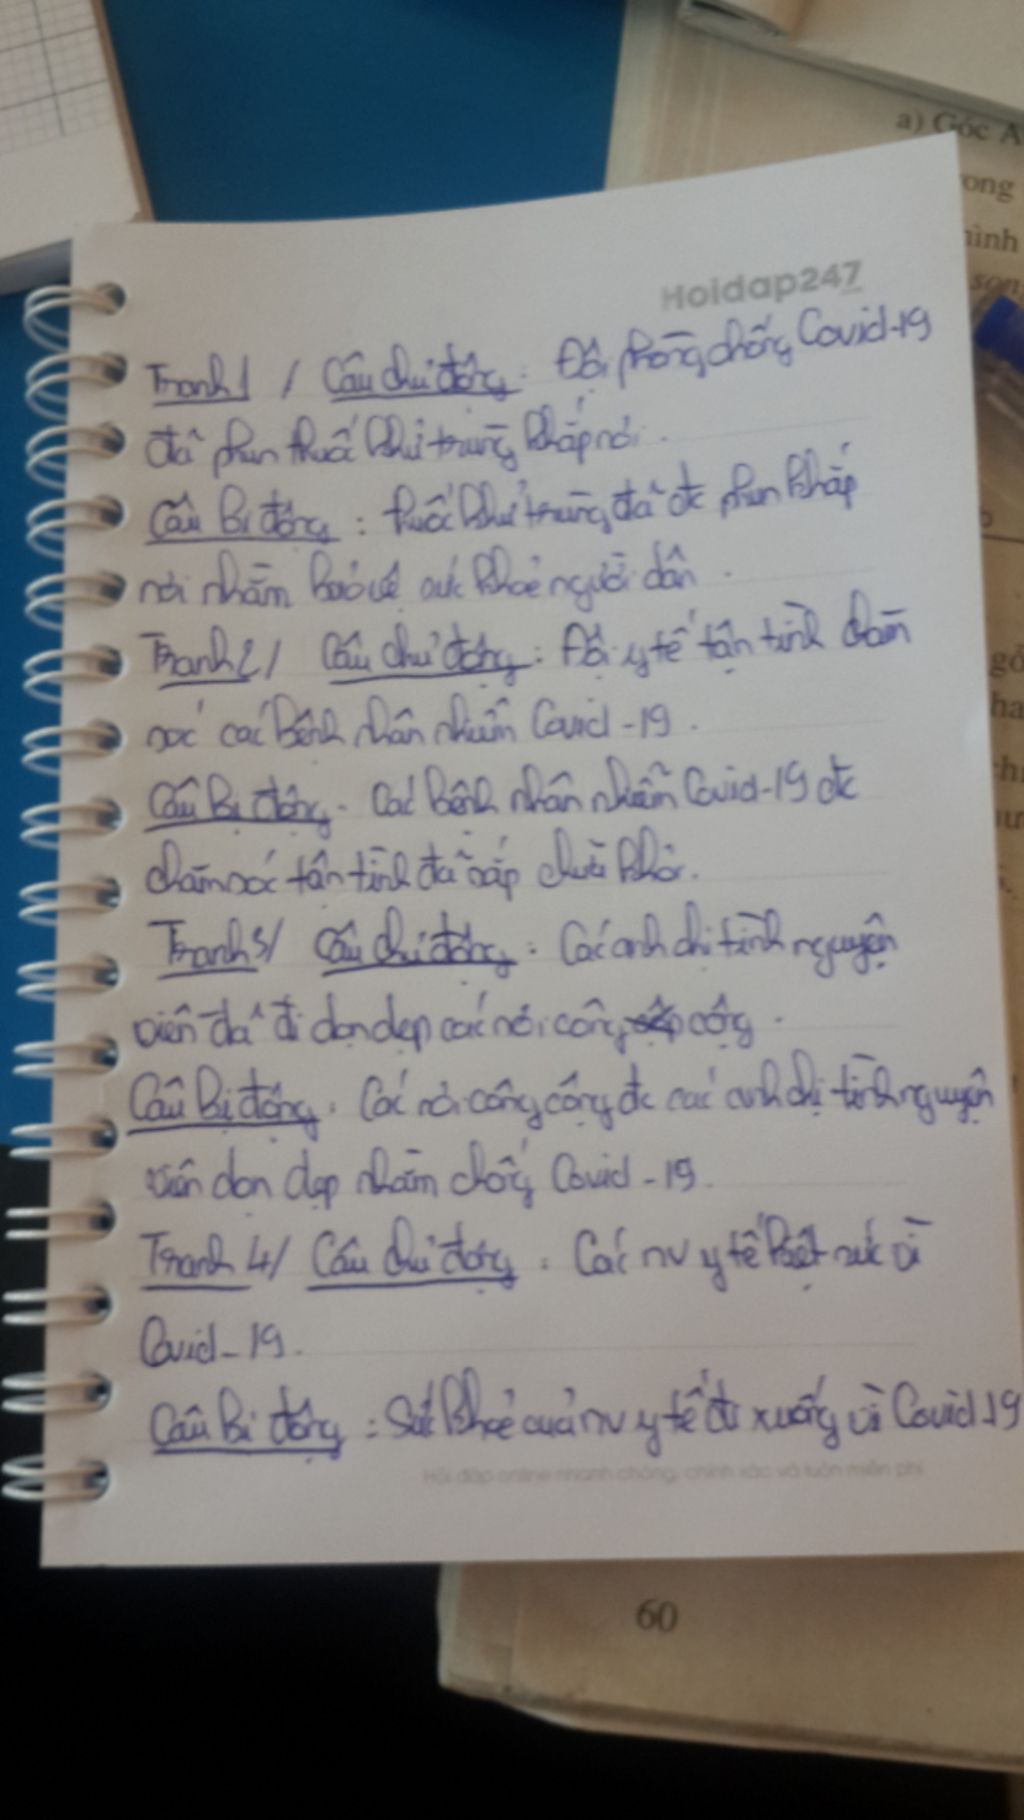 a) Góc A
ong
hình
son
Hoidap247
Tranh 1 / Câu chủ động : Đội phòng chống Covid-19
đã phun thuốc khử trùng khắp nơi.
Câu bị động : thuốc khử trùng đã đc phun khắp
nơi nhằm bảo vệ sức khoẻ người dân.
Tranh 2 / Câu chủ động : Đội y tế tận tình chăm
sóc các bệnh nhân nhiễm Covid-19.
Câu bị động. Các bệnh nhân nhiễm Covid-19 đc
chăm sóc tận tình đã sắp chữa khỏi.
Tranh 3/ Câu chủ động : Các anh chị tình nguyện
viên đã đi dọn dẹp các nơi công cộng.
Câu bị động. Các nơi công cộng đc các anh chị tình nguyện
viên dọn dẹp nhằm chống Covid-19.
Tranh 4/ Câu chủ động. Các nv y tế kiệt sức vì
Covid-19.
Câu bị động : Sức khoẻ của nv y tế đi xuống vì Covid 19
Hỏi đáp online nhanh chóng, chính xác và luôn miễn phí
60